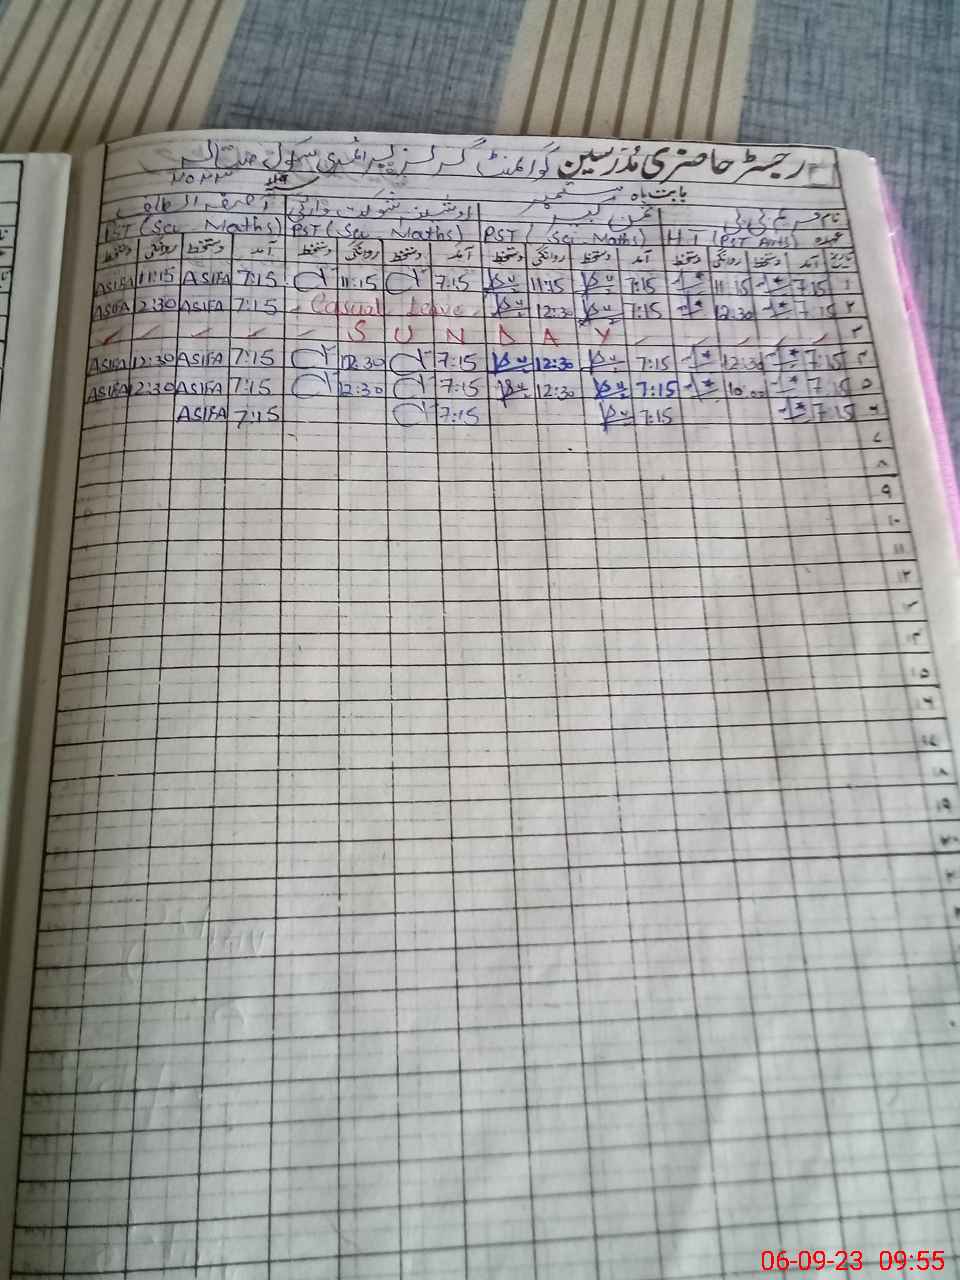 رجسٹر حاضری مدرسین گورنمنٹ گرلز پرائمری سکول
بابت ماہ ستمبر ۲۰۲۳
نام
عہدہ H.T (PST Arts) PST (Sci Maths) PST (Sci Maths) PST (Sci Maths)
تاریخ آمد دستخط روانگی دستخط آمد دستخط روانگی دستخط آمد دستخط روانگی دستخط آمد دستخط روانگی دستخط
۱ 7:15 11:15 7:15 11:15 7:15 11:15 7:15 ASIFA 11:15 ASIFA
۲ 7:15 12:30 7:15 12:30 Casual Leave 7:15 ASIFA 12:30 ASIFA
۳ SUNDAY
۴ 7:15 12:30 7:15 12:30 7:15 12:30 7:15 ASIFA 12:30 ASIFA
۵ 7:15 10:00 7:15 12:30 7:15 12:30 7:15 ASIFA 12:30 ASIFA
۶ 7:15 7:15 7:15 7:15 ASIFA
۷
۸
۹
۱۰
۱۱
۱۲
۱۳
۱۴
۱۵
۱۶
۱۷
۱۸
۱۹
۲۰
06-09-23 09:55